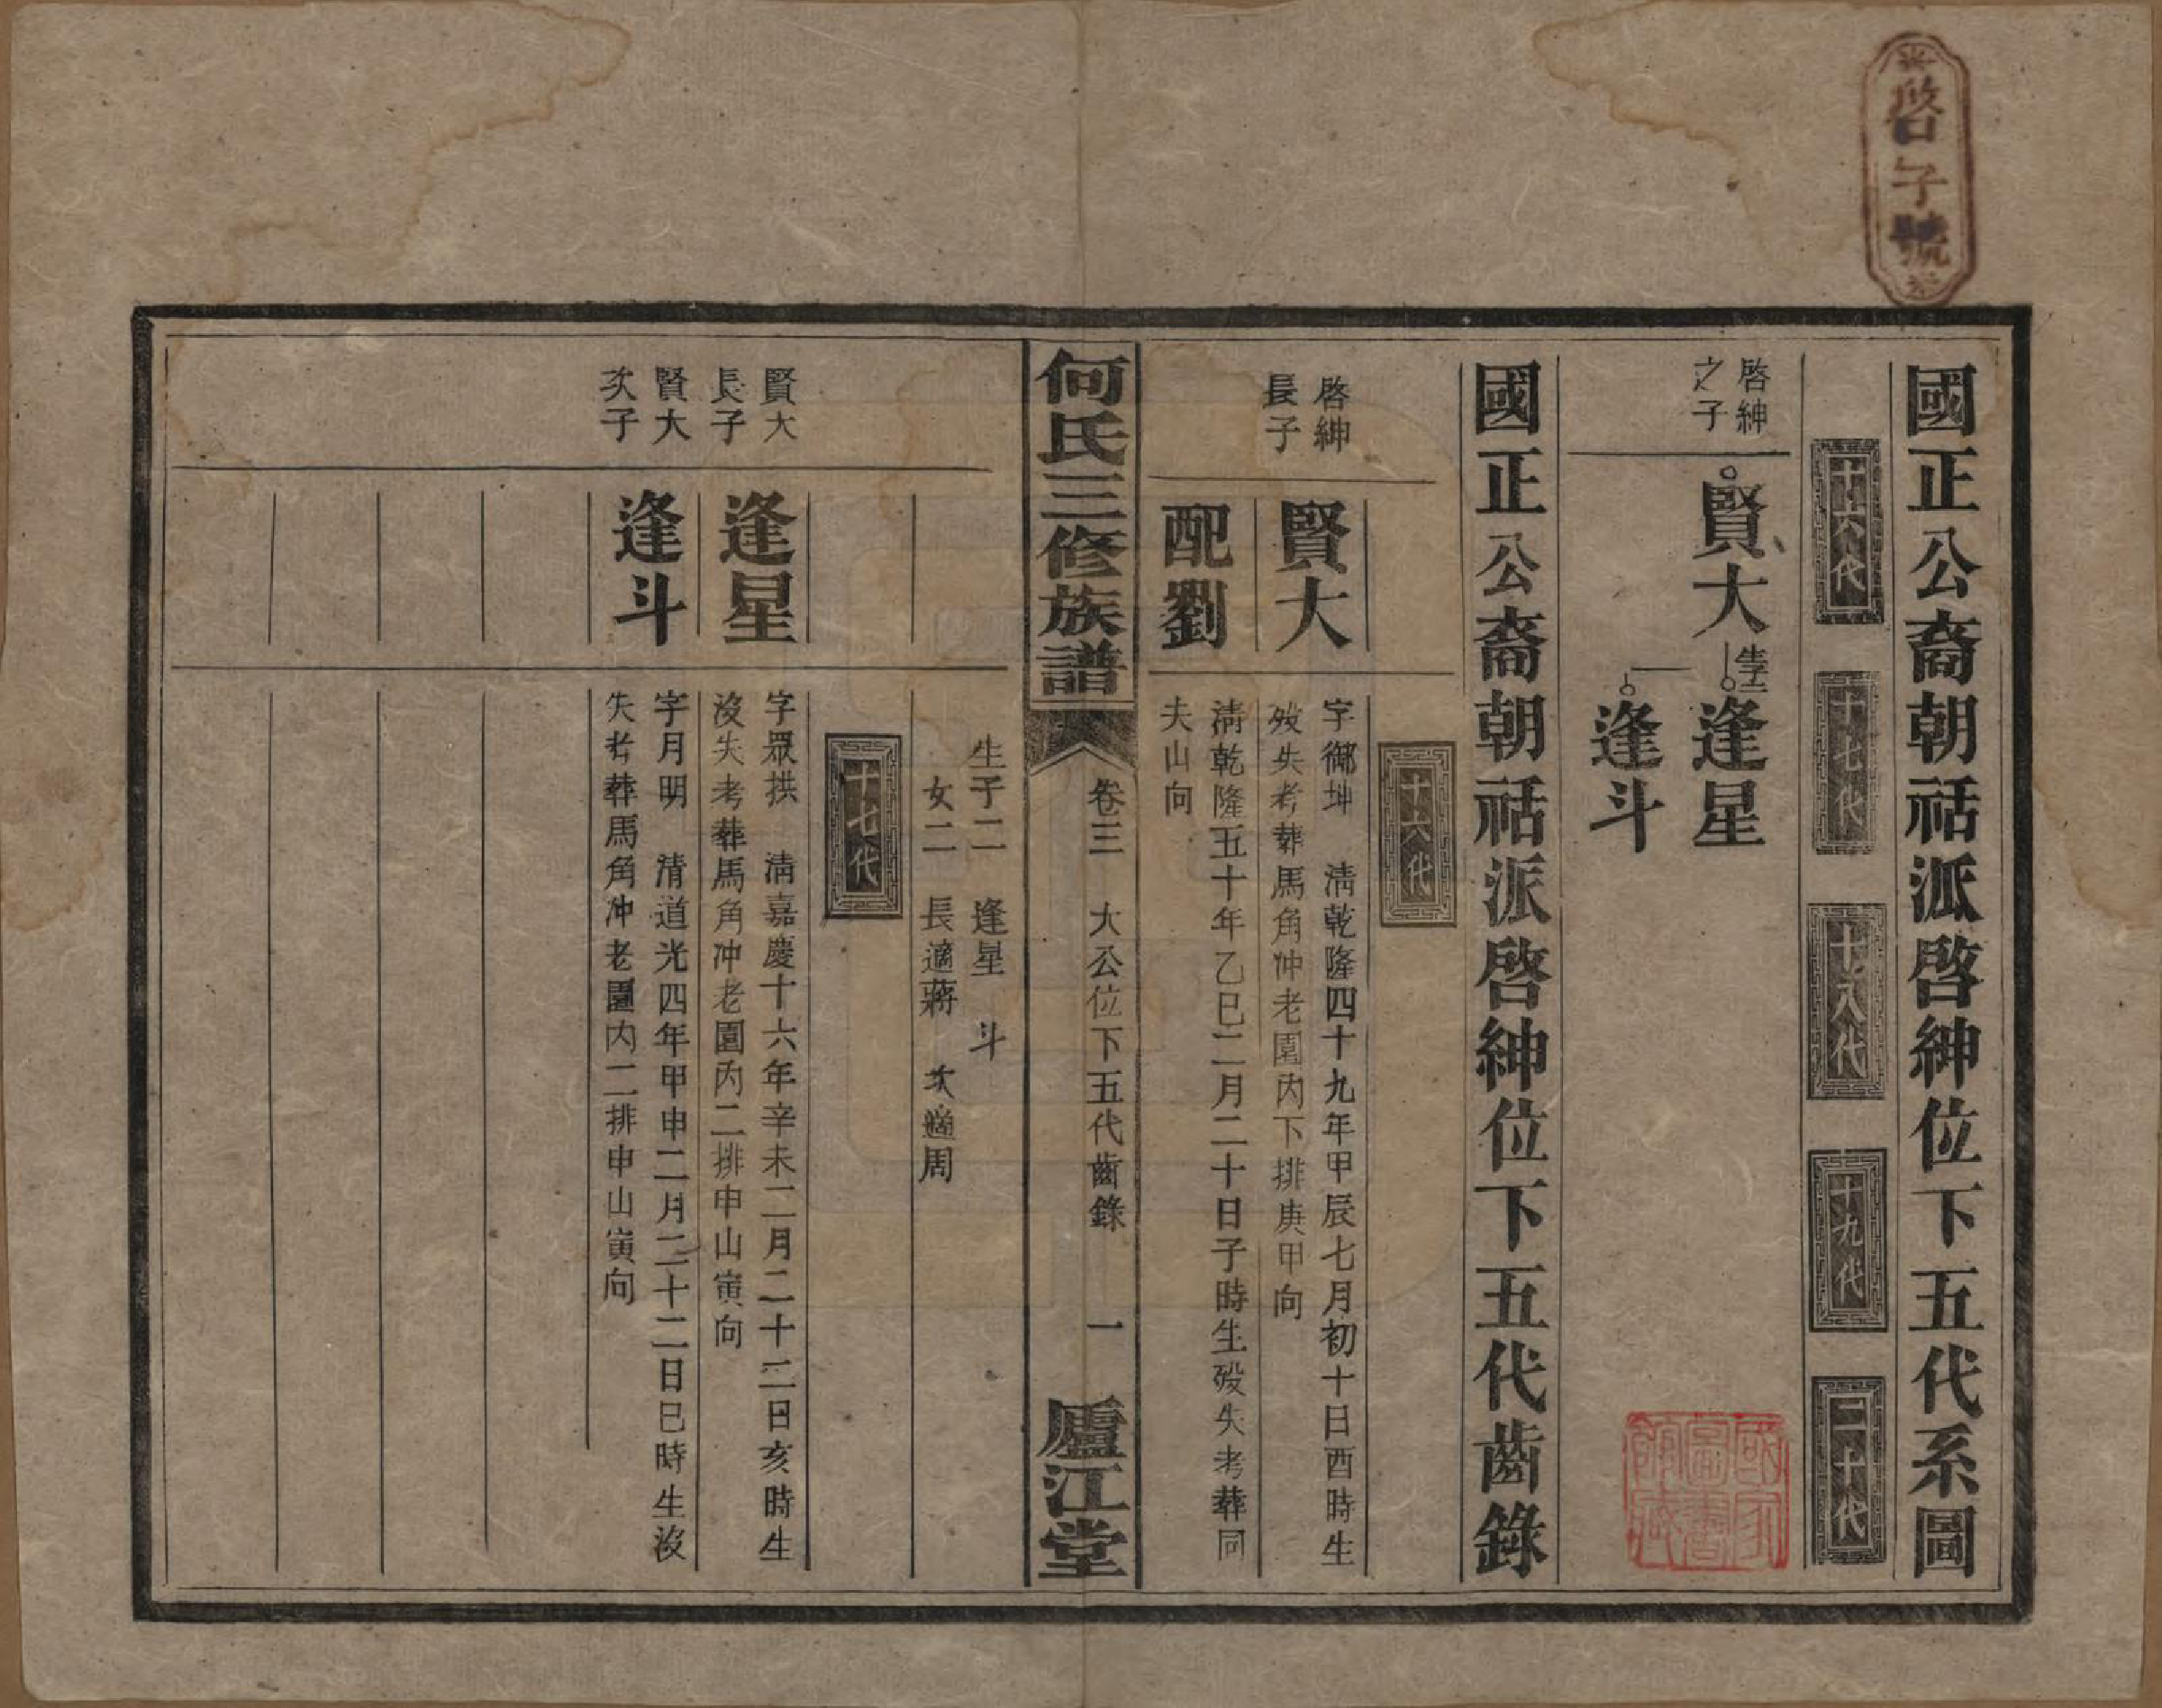 啓子號
國正公裔朝祜派啓紳位下五代系圖
十六代
十七代
十八代
十九代
二十代
啓紳
之子
賢大
生子二
逢星
逢斗
國家圖書館藏
國正公裔朝祜派啓紳位下五代齒錄
十六代
啓紳
長子
賢大
字御坤 淸乾隆四十九年甲辰七月初十日酉時生
歿失考葬馬角冲老園內下排庚甲向
配劉
淸乾隆五十年乙巳二月二十日子時生歿失考葬同
夫山向
何氏三修族譜
卷三 大公位下五代齒錄 一
廬江堂
生子二 逢星 斗
女二 長適蔣 次適周
十七代
賢大
長子
逢星
字眾拱 淸嘉慶十六年辛未二月二十二日亥時生
沒失考葬馬角冲老園內二排申山寅向
賢大
次子
逢斗
字月明 清道光四年甲申二月二十二日巳時生沒
失考葬馬角冲老園內二排申山寅向